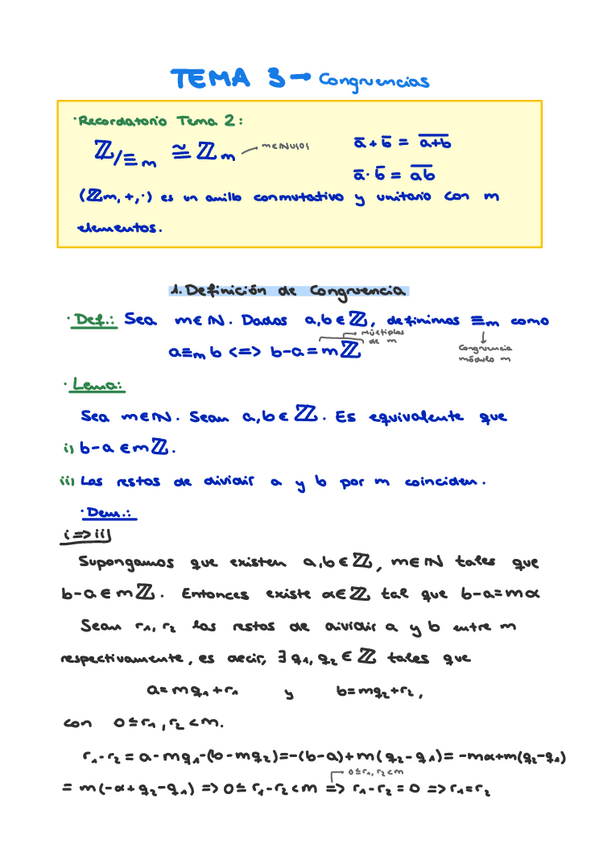 TEMA 3 → Congruencias
· Recordatorio Tema 2:
ℤ/≡m ≅ ℤm — m∈ℕ\{0}
ā + b̄ = \overline{a+b}
ā · b̄ = \overline{ab}
(ℤm, +, ·) es un anillo conmutativo y unitario con m
elementos.
1. Definición de Congruencia
· Def.: Sea m∈ℕ. Dados a,b∈ℤ, definimos ≡m como
múltiplos de m
Congruencia módulo m
a≡m b <=> b-a = mℤ
· Lema:
Sea m∈ℕ. Sean a,b∈ℤ. Es equivalente que
i) b-a ∈ mℤ.
ii) Las restos de dividir a y b por m coinciden.
· Dem.:
i=>ii)
Supongamos que existen a,b∈ℤ, m∈ℕ tales que
b-a∈mℤ. Entonces existe α∈ℤ tal que b-a=mα
Sean r₁, r₂ los restos de dividir a y b entre m
respectivamente, es decir, ∃ q₁, q₂ ∈ ℤ tales que
a=mq₁+r₁ y b=mq₂+r₂,
con 0≤r₁, r₂<m.
r₁-r₂ = a-mq₁-(b-mq₂)=-(b-a)+m(q₂-q₁)= -mα+m(q₂-q₁)
0≤r₁, r₂<m
= m(-α+q₂-q₁) => 0≤ r₁-r₂<m => r₁-r₂=0 => r₁=r₂